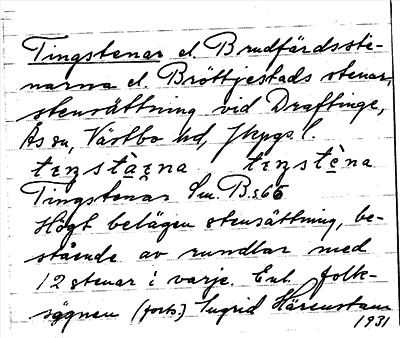 Tingstenar el. Brudfärdsste-
narna el Bröttjestads stenar,
stensättning vid Draftinge,
Ås sn, Västbo hd, Jkpgs l.
Tingstenar Sm. B. s 66
Högt belägen stensättning, be-
stående av rundlar med
12 stenar i varje. Enl. folk-
sägnen (forts.) Ingrid Härenstam
1931